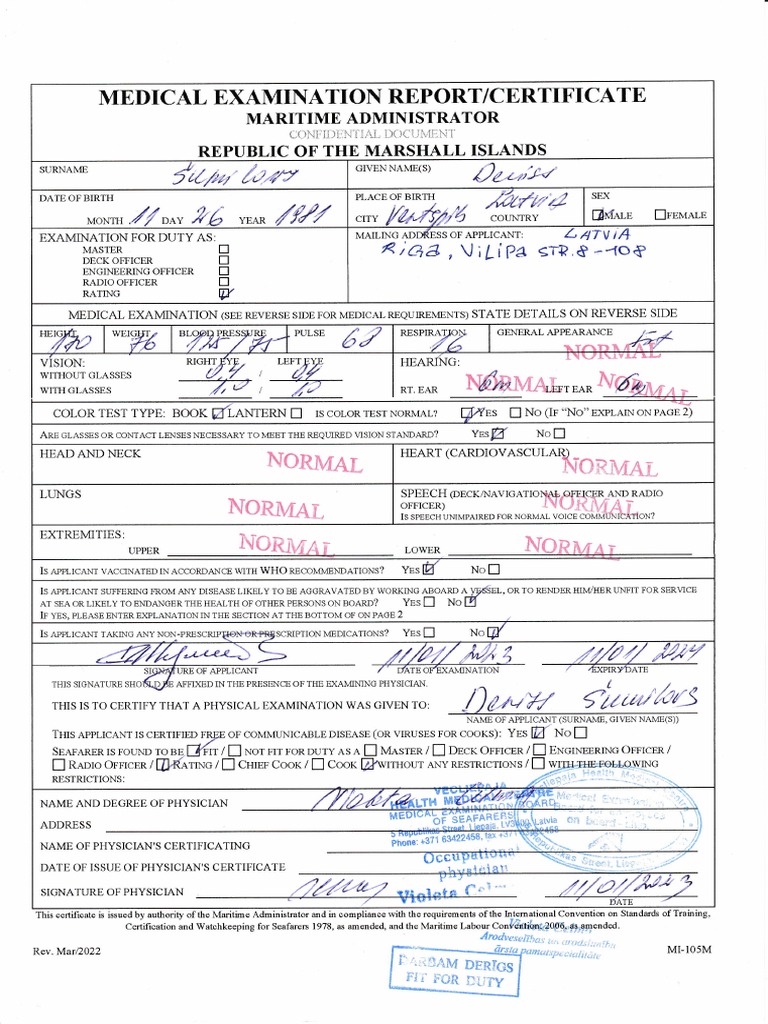 MEDICAL EXAMINATION REPORT/CERTIFICATE
MARITIME ADMINISTRATOR
CONFIDENTIAL DOCUMENT
REPUBLIC OF THE MARSHALL ISLANDS
SURNAME Šumilovs GIVEN NAME(S) Deniss
DATE OF BIRTH
MONTH 11 DAY 26 YEAR 1981
PLACE OF BIRTH
CITY Ventspils COUNTRY Latvia
SEX
MALE FEMALE
EXAMINATION FOR DUTY AS:
MASTER
DECK OFFICER
ENGINEERING OFFICER
RADIO OFFICER
RATING
MAILING ADDRESS OF APPLICANT: LATVIA
RIGA, VILIPA STR. 8-108
MEDICAL EXAMINATION (SEE REVERSE SIDE FOR MEDICAL REQUIREMENTS) STATE DETAILS ON REVERSE SIDE
HEIGHT 170 WEIGHT 76 BLOOD PRESSURE 125/75 PULSE 68 RESPIRATION 16 GENERAL APPEARANCE
NORMAL
VISION: RIGHT EYE LEFT EYE
WITHOUT GLASSES 0,4 / 0,4
WITH GLASSES 1,0 / 1,0
HEARING:
RT. EAR 6m NORMAL LEFT EAR 6m NORMAL
COLOR TEST TYPE: BOOK LANTERN IS COLOR TEST NORMAL? YES NO (IF "NO" EXPLAIN ON PAGE 2)
ARE GLASSES OR CONTACT LENSES NECESSARY TO MEET THE REQUIRED VISION STANDARD? YES NO
HEAD AND NECK NORMAL
HEART (CARDIOVASCULAR) NORMAL
LUNGS NORMAL
SPEECH (DECK/NAVIGATIONAL OFFICER AND RADIO OFFICER) NORMAL
IS SPEECH UNIMPAIRED FOR NORMAL VOICE COMMUNICATION?
EXTREMITIES:
UPPER NORMAL LOWER NORMAL
IS APPLICANT VACCINATED IN ACCORDANCE WITH WHO RECOMMENDATIONS? YES NO
IS APPLICANT SUFFERING FROM ANY DISEASE LIKELY TO BE AGGRAVATED BY WORKING ABOARD A VESSEL, OR TO RENDER HIM/HER UNFIT FOR SERVICE
AT SEA OR LIKELY TO ENDANGER THE HEALTH OF OTHER PERSONS ON BOARD? YES NO
IF YES, PLEASE ENTER EXPLANATION IN THE SECTION AT THE BOTTOM OF ON PAGE 2
IS APPLICANT TAKING ANY NON-PRESCRIPTION OR PRESCRIPTION MEDICATIONS? YES NO
11/01/2023 11/01/2024
SIGNATURE OF APPLICANT DATE OF EXAMINATION EXPIRY DATE
THIS SIGNATURE SHOULD BE AFFIXED IN THE PRESENCE OF THE EXAMINING PHYSICIAN.
THIS IS TO CERTIFY THAT A PHYSICAL EXAMINATION WAS GIVEN TO: Deniss Šumilovs
NAME OF APPLICANT (SURNAME, GIVEN NAME(S))
THIS APPLICANT IS CERTIFIED FREE OF COMMUNICABLE DISEASE (OR VIRUSES FOR COOKS): YES NO
SEAFARER IS FOUND TO BE FIT / NOT FIT FOR DUTY AS A MASTER / DECK OFFICER / ENGINEERING OFFICER /
RADIO OFFICER / RATING / CHIEF COOK / COOK WITHOUT ANY RESTRICTIONS / WITH THE FOLLOWING
RESTRICTIONS:
NAME AND DEGREE OF PHYSICIAN
ADDRESS
NAME OF PHYSICIAN'S CERTIFICATING
DATE OF ISSUE OF PHYSICIAN'S CERTIFICATE
SIGNATURE OF PHYSICIAN 11/01/2023
DATE
VECLIEPAJA
HEALTH MEDICAL CENTRE
MEDICAL EXAMINATION BOARD
OF SEAFARERS
5 Republikas Street, Liepaja, Latvia
Phone: +371 63422458, fax +371
Occupational
physician
Violeta
This certificate is issued by authority of the Maritime Administrator and in compliance with the requirements of the International Convention on Standards of Training,
Certification and Watchkeeping for Seafarers 1978, as amended, and the Maritime Labour Convention, 2006, as amended.
Arodveselības un arodslimību
ārsta pamatspecialitāte
Rev. Mar/2022 MI-105M
DARBAM DERĪGS
FIT FOR DUTY